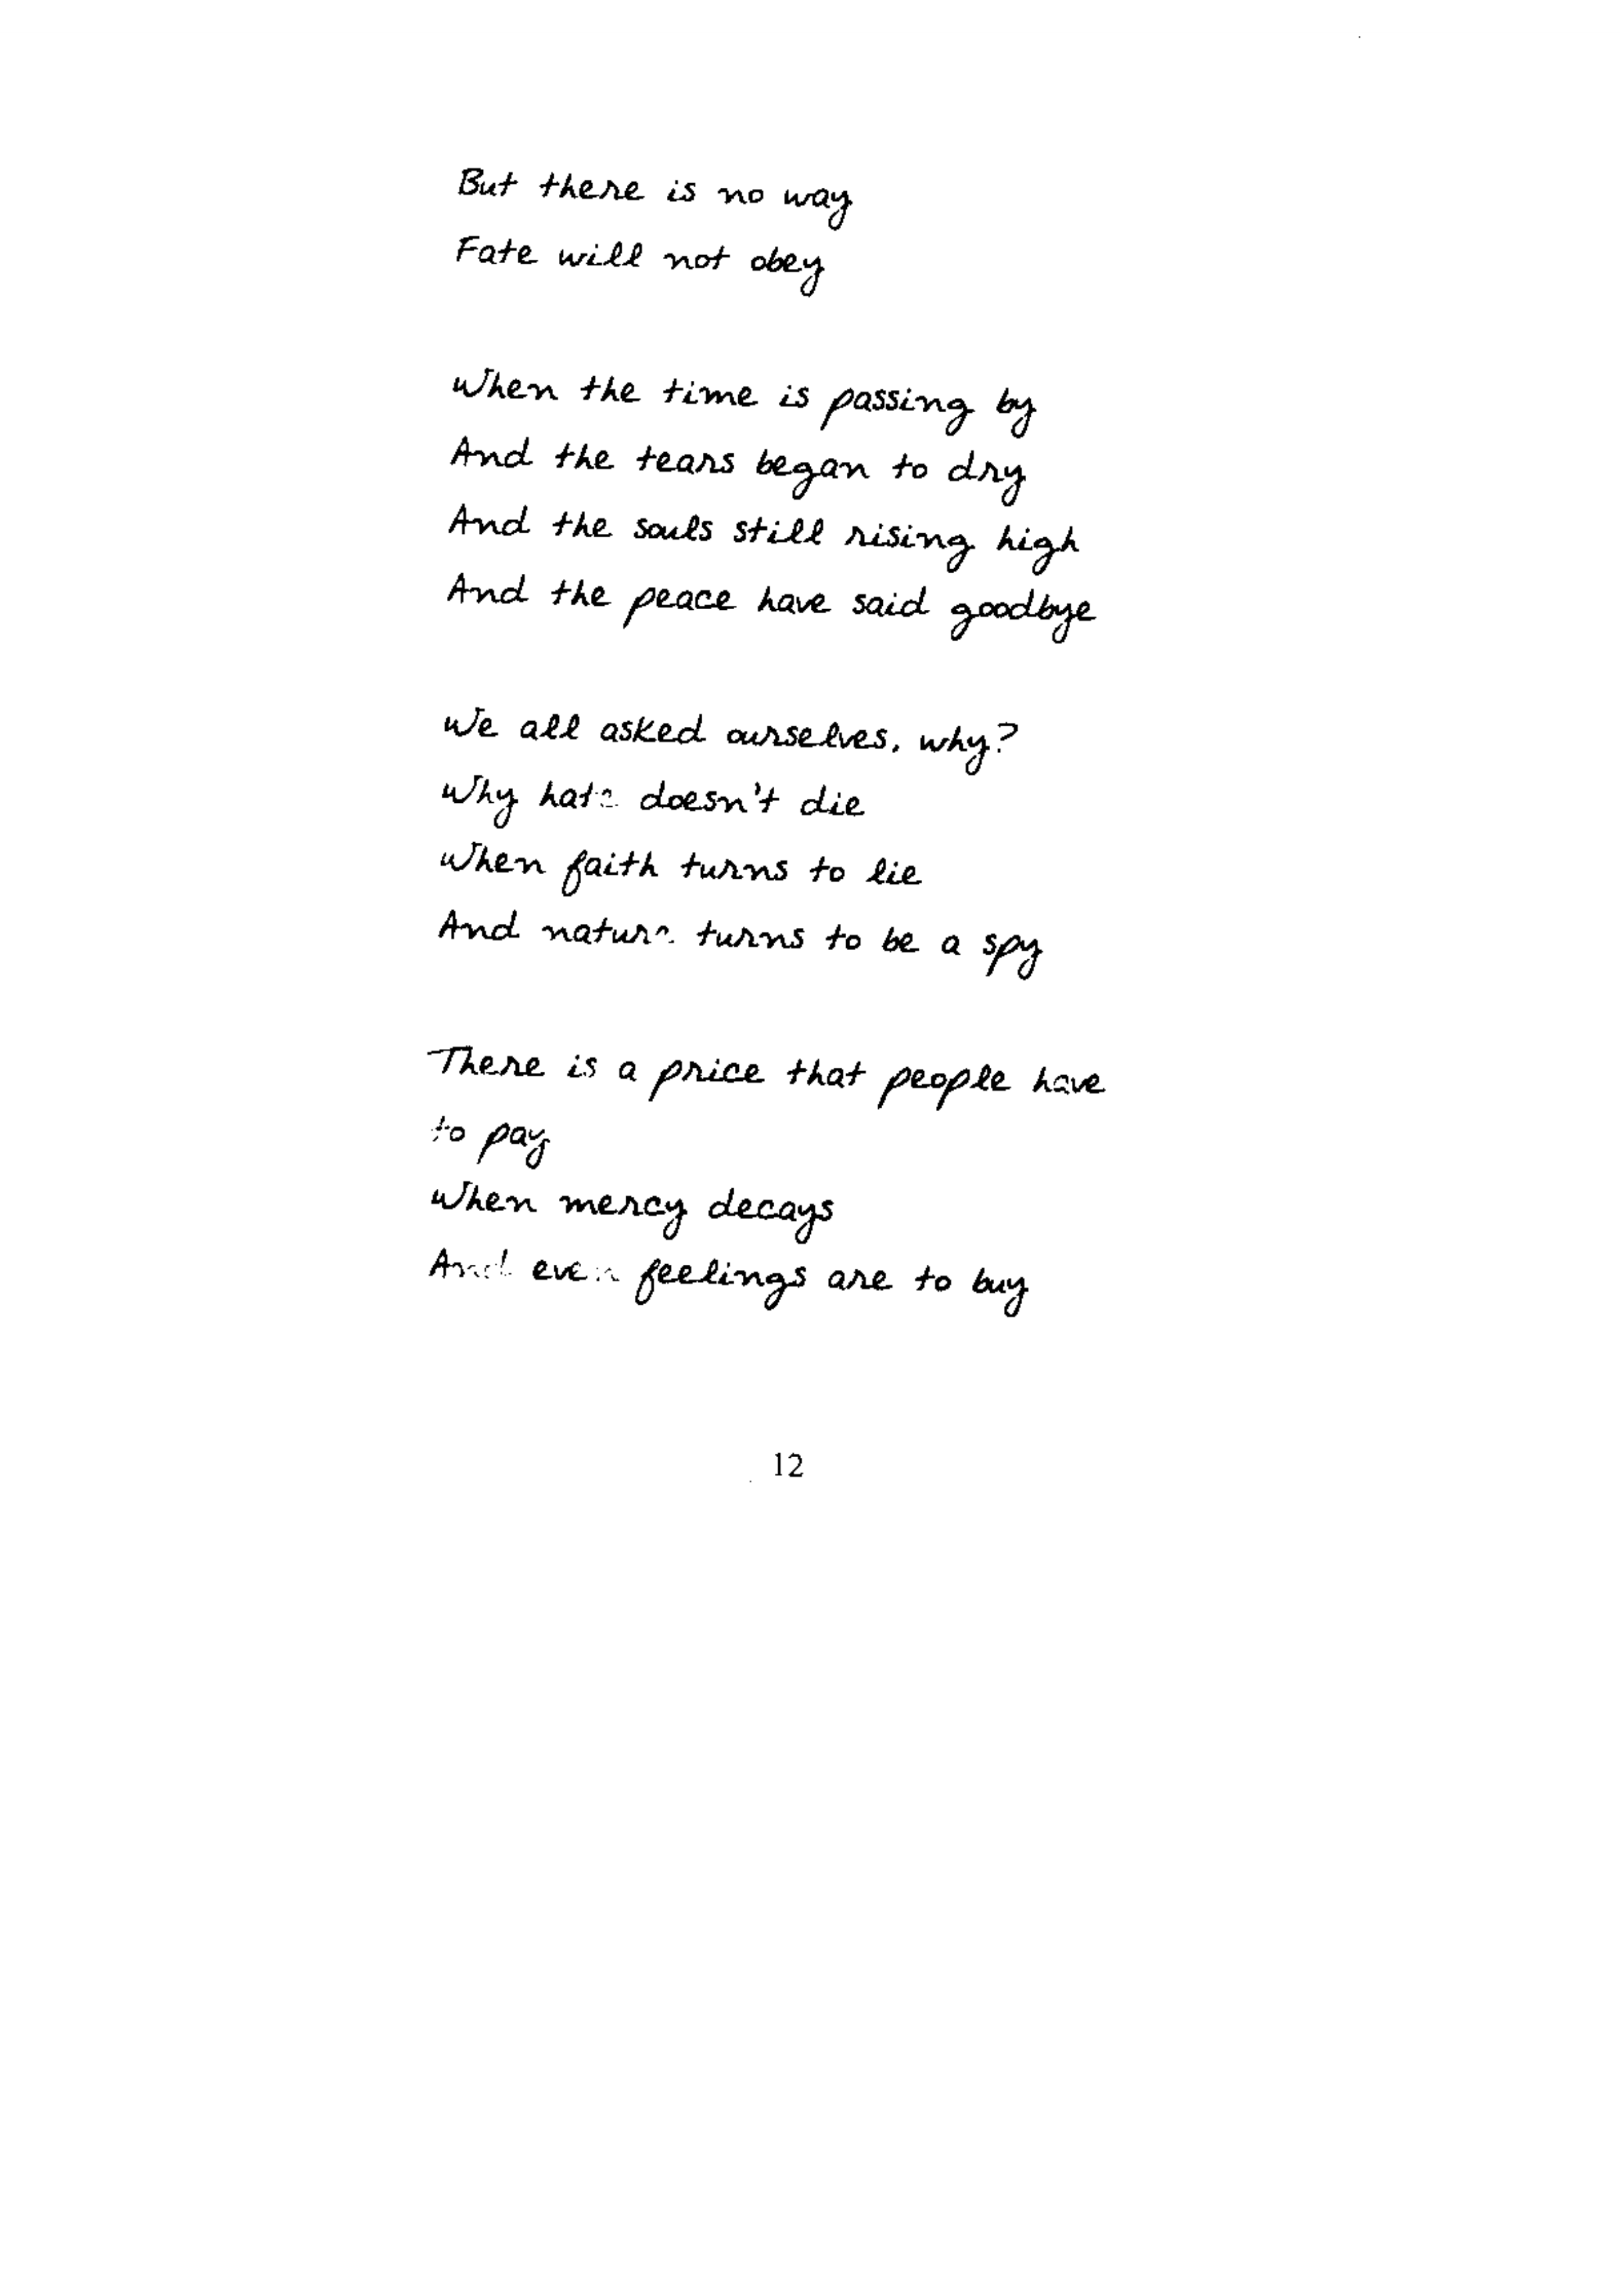 But there is no way
Fate will not obey
When the time is passing by
And the tears began to dry
And the souls still rising high
And the peace have said goodbye
We all asked ourselves, why?
Why hate doesn't die
When faith turns to lie
And nature turns to be a spy
There is a price that people have
to pay
When mercy decays
And even feelings are to buy
12